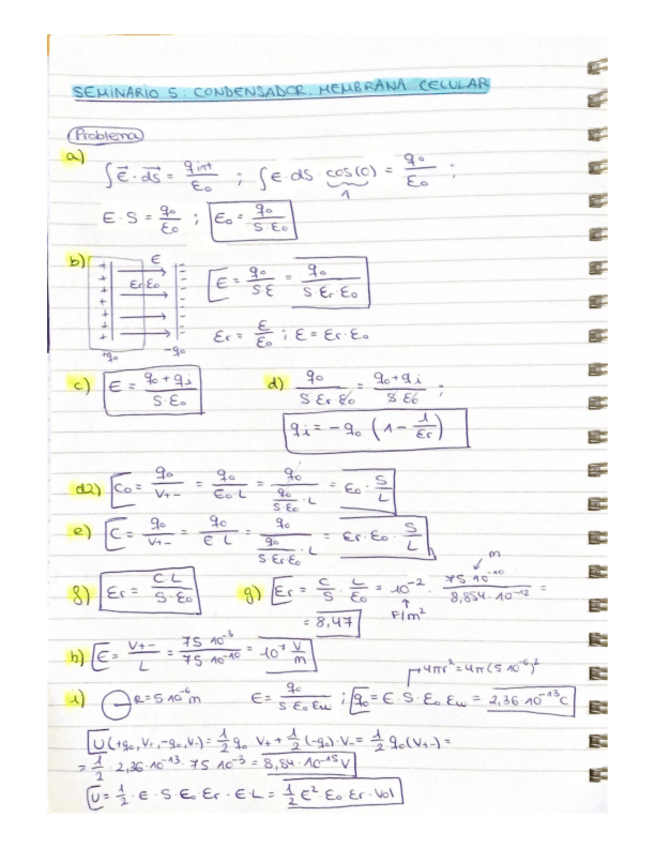 SEMINARIO 5: CONDENSADOR. MEMBRANA CELULAR
Problema
a) ∫E⃗·dS⃗ = qint/ε₀ ; ∫E·dS·cos(0) = q₀/ε₀ ;
1
E·S = q₀/ε₀ ; E₀ = q₀/(S·ε₀)
b) + + + + + + + E εr ε₀ - - - - - - - +q₀ -q₀ E = q₀/(S·ε) = q₀/(S εr·ε₀)
εr = ε/ε₀ ; ε = εr·ε₀
c) E = (q₀ + qi)/(S·ε₀) d) q₀/(S εr·ε₀) = (q₀+qi)/(S ε₀) ;
qi = -q₀ (1 - 1/εr)
d2) C₀ = q₀/V+- = q₀/(E₀·L) = q₀/(q₀/(S ε₀)·L) = ε₀·S/L
e) C = q₀/V+- = q₀/(E L) = q₀/(q₀/(S εrε₀)·L) = εr·ε₀·S/L
f) εr = C L/(S·ε₀) g) εr = C/S · L/ε₀ = 10⁻² · 75 10⁻¹⁰/8,854·10⁻¹² =
m
F/m²
= 8,47
h) E = V+-/L = 75 10⁻³/75 10⁻¹⁰ = 10⁷ V/m
4πr² = 4π(5 10⁻⁶)²
i) R = 5 10⁻⁶m E = q₀/(S ε₀ εw) ; q₀ = E·S·ε₀ εw = 2,36 10⁻¹³C
U(+q₀,V+,-q₀,V-) = 1/2 q₀ V+ + 1/2 (-q₀)·V- = 1/2 q₀(V+-) =
= 1/2 · 2,36·10⁻¹³ · 75 10⁻³ = 8,84·10⁻¹⁵V
U = 1/2 · E·S·ε₀·εr·E·L = 1/2 E²·ε₀ εr·Vol